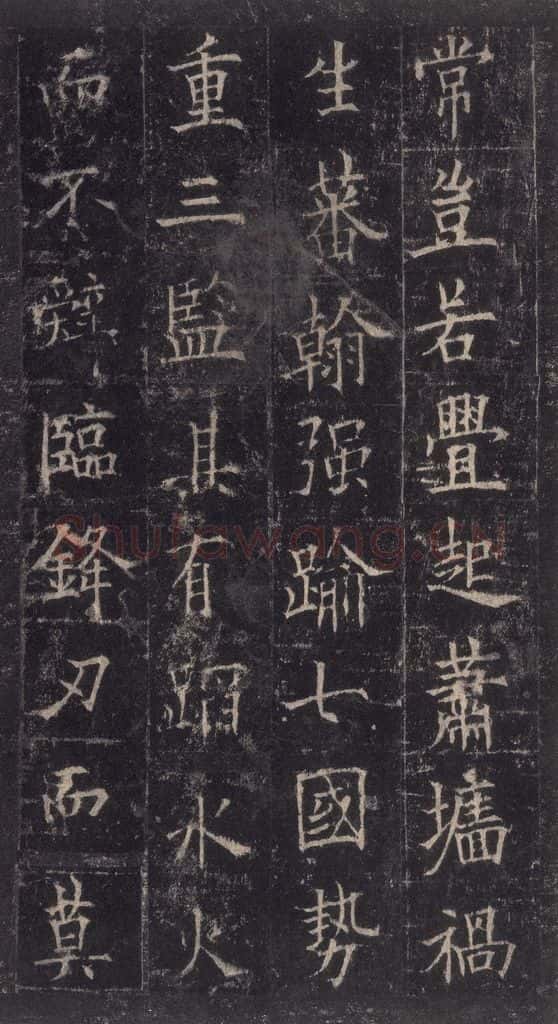 常豈若舋起蕭墻禍
生蕃翰强踰七國勢
重三監其有蹈水火
而不辭臨鋒刃而莫
Shufawang.cn